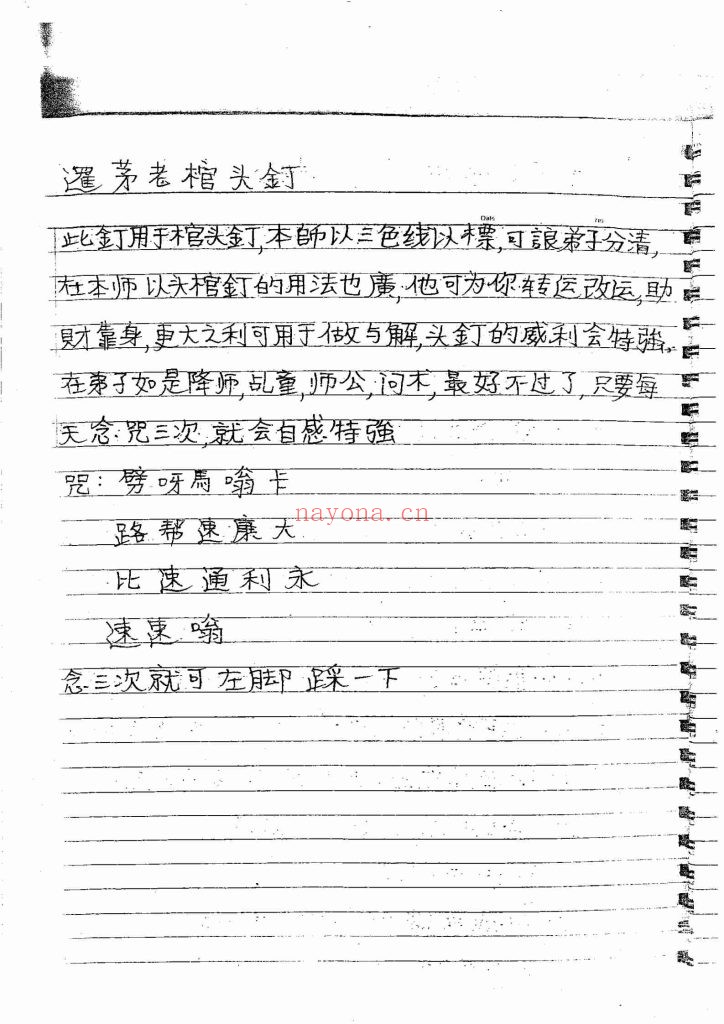 暹茅老棺头釘
Date No.
此釘用于棺头釘,本師以三色线以標,可讓弟子分清,
在本师以头棺釘的用法也廣,他可为你转运改运,助
財靠身,更大之利可用于做与解,头釘的威利会特強。
在弟子如是降师,乩童,师公,问术,最好不过了,只要每
天念:咒三次,就会自感特強
咒:劈呀馬嗡卡
nayona.cn
路帮速廉大
比速通利永
速速嗡
念三次就可左脚踩一下